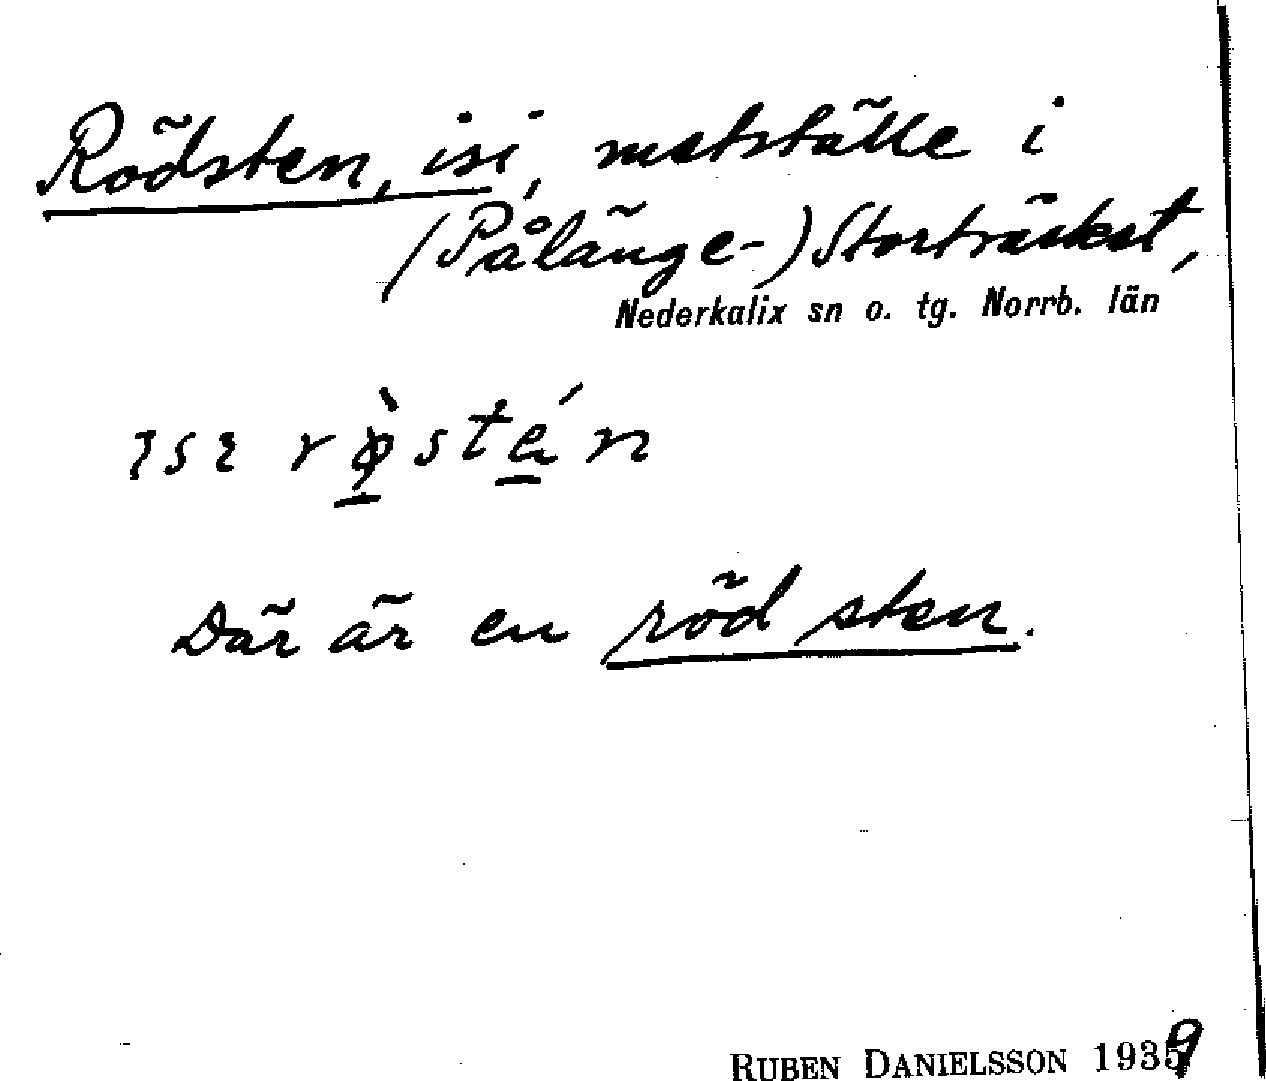 Rödsten, isi, notställe i
(Pålänge-) Storträsket,
Nederkalix sn o. tg. Norrb. län
Där är en röd sten.
RUBEN DANIELSSON 1939